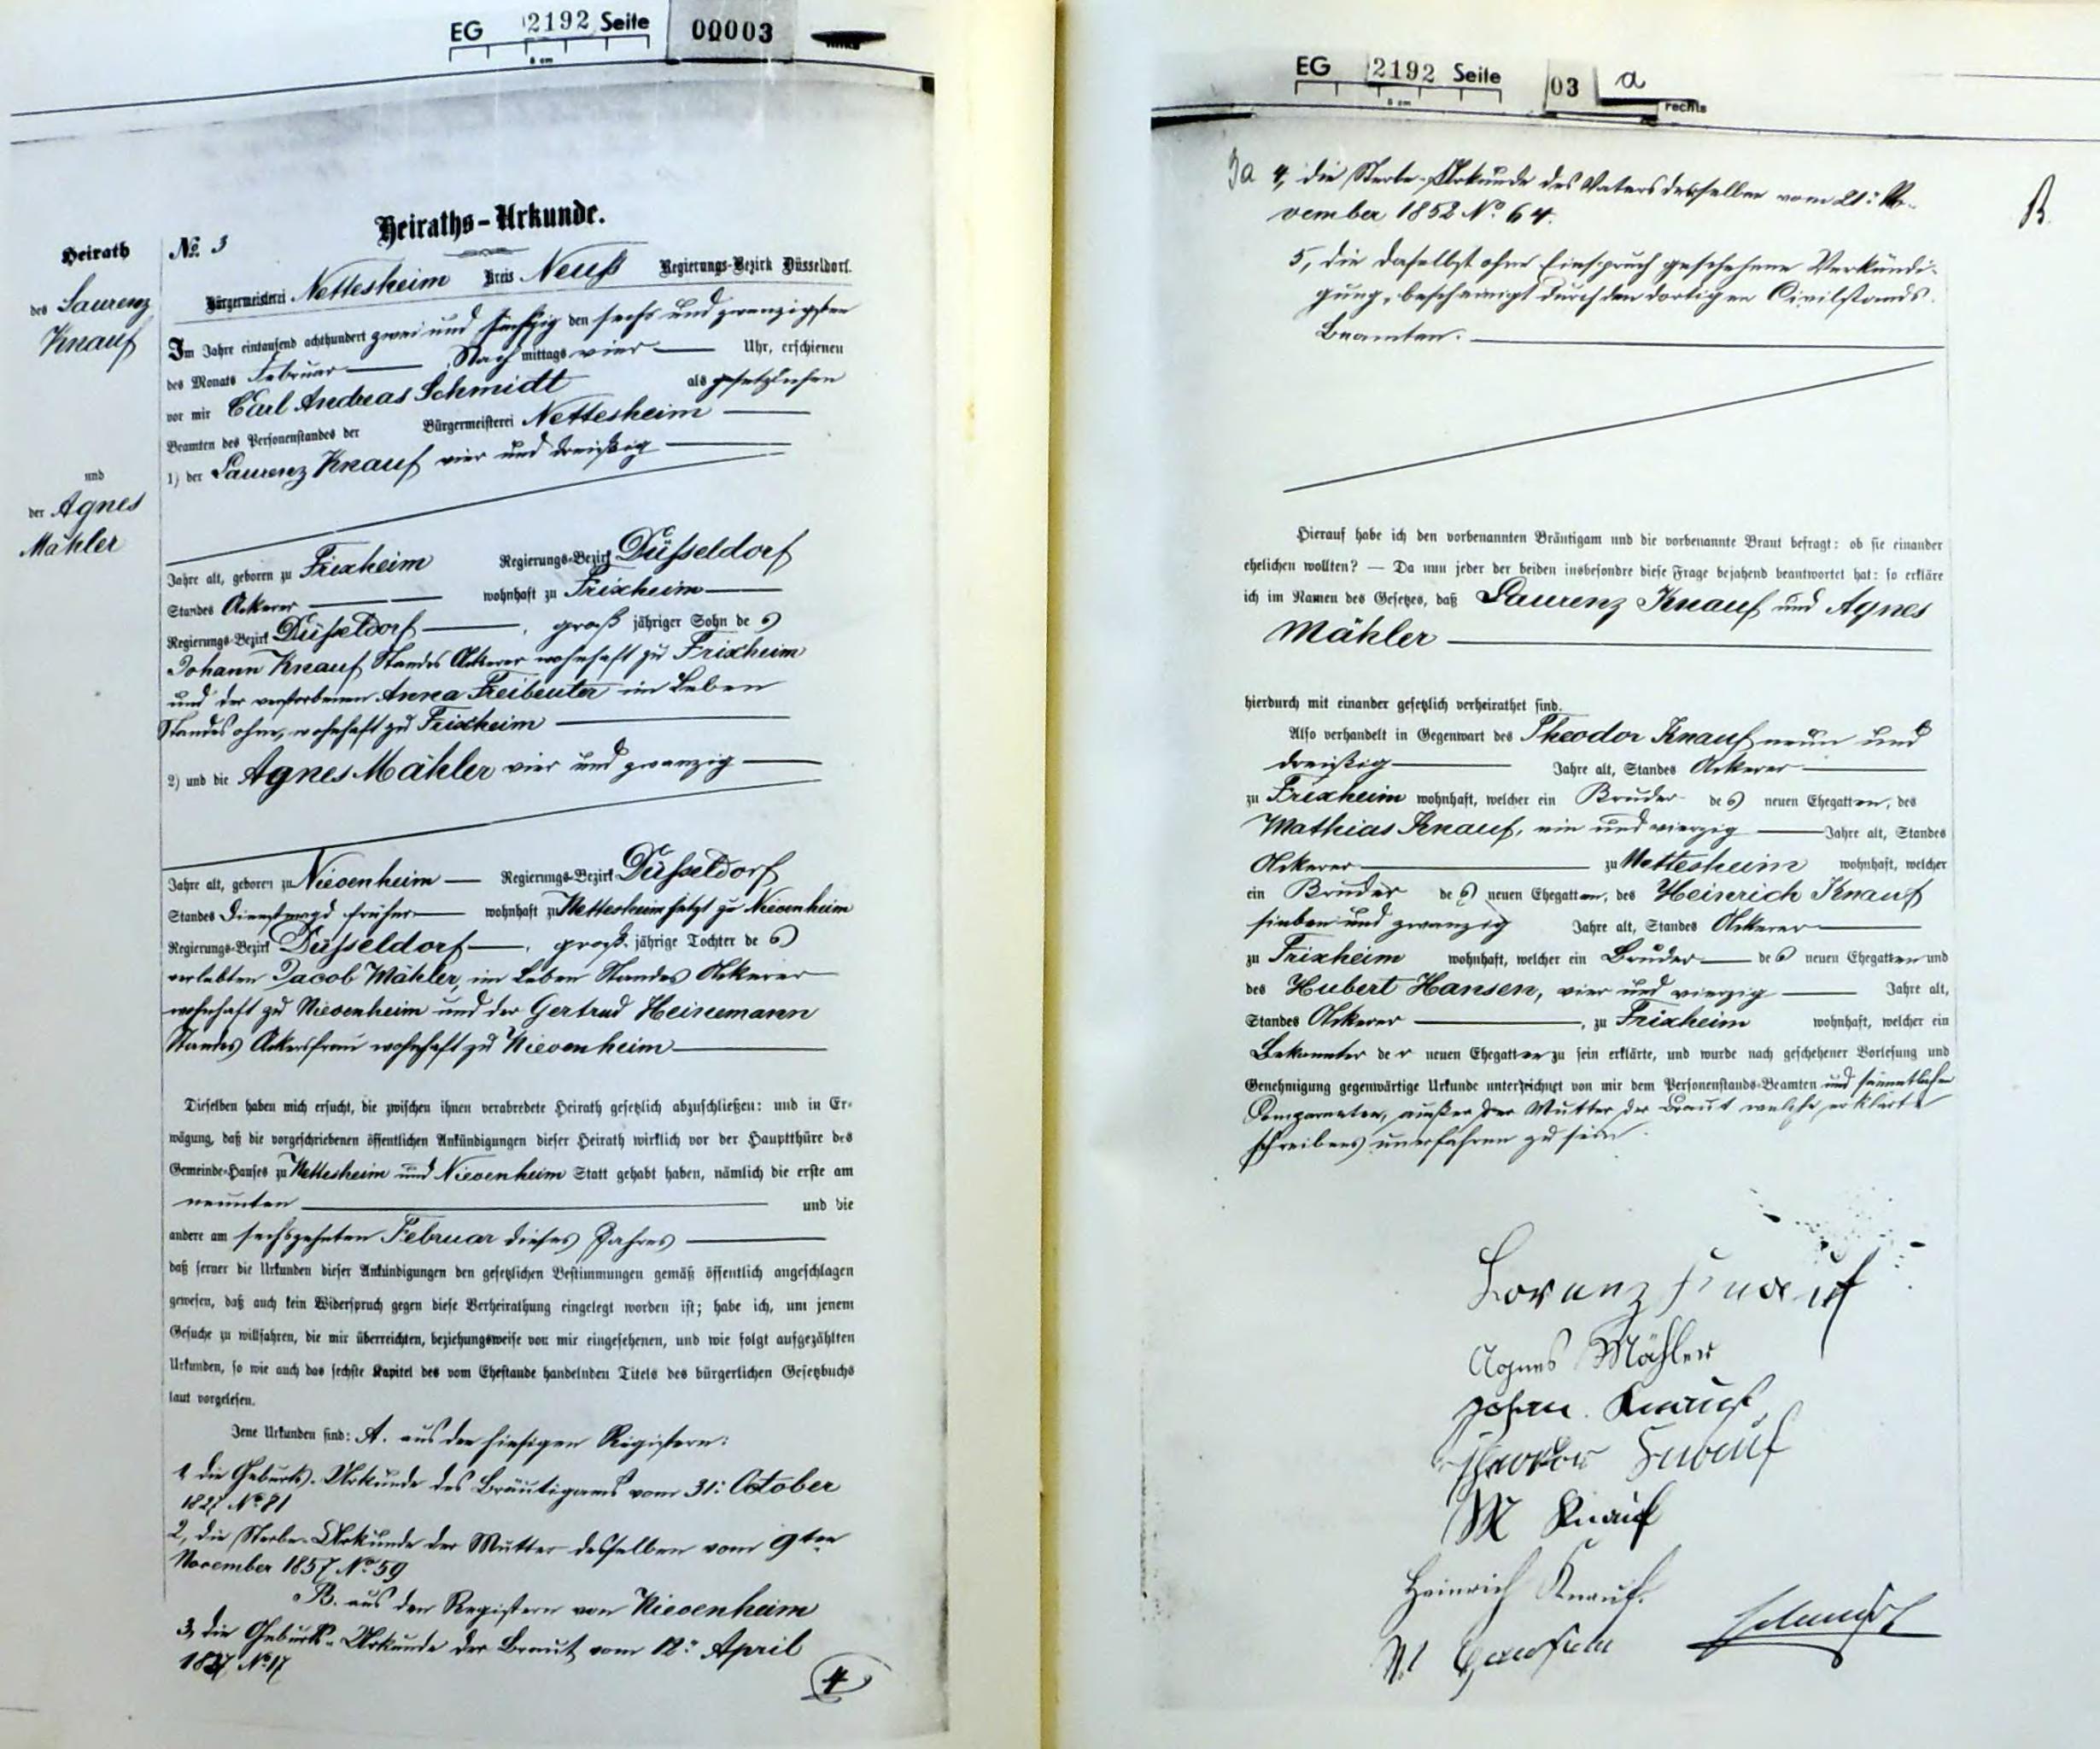 EG 2192 Seite 00003
8 cm
Heiraths-Urkunde.
Heirath
des Laurenz
Knauf
und
der Agnes
Mähler
No. 3
Bürgermeisterei Nettesheim Kreis Neuß Regierungs-Bezirk Düsseldorf.
Im Jahre eintausend achthundert zwei und sechszig den sechs und zwanzigsten
des Monats Februar Nach mittags vier Uhr, erschienen
vor mir Carl Andreas Schmidt als gesetzlichen
Beamten des Personenstandes der Bürgermeisterei Nettesheim
1) der Laurenz Knauf vier und dreißig
Jahre alt, geboren zu Frixheim Regierungs-Bezirk Düsseldorf
Standes Ackerer wohnhaft zu Frixheim
Regierungs-Bezirk Düsseldorf, groß jähriger Sohn des
Johann Knauf Standes Ackerer wohnhaft zu Frixheim
und der verstorbenen Anna Freibeuter im Leben
Standes ohne, wohnhaft zu Frixheim
2) und die Agnes Mähler vier und zwanzig
Jahre alt, geboren zu Nievenheim Regierungs-Bezirk Düsseldorf
Standes Dienstmagd früher wohnhaft zu Nettesheim jetzt zu Nievenheim
Regierungs-Bezirk Düsseldorf, groß jährige Tochter des
verlebten Jacob Mähler, im Leben Standes Ackerer
wohnhaft zu Nievenheim und der Gertrud Heinemann
Standes Ackersfrau wohnhaft zu Nievenheim
Dieselben haben mich ersucht, die zwischen ihnen verabredete Heirath gesetzlich abzuschließen: und in Er-
wägung, daß die vorgeschriebenen öffentlichen Ankündigungen dieser Heirath wirklich vor der Hauptthüre des
Gemeinde-Hauses zu Nettesheim und Nievenheim Statt gehabt haben, nämlich die erste am
neunten und die
andere am sechszehnten Februar dieses Jahres
daß ferner die Urkunden dieser Ankündigungen den gesetzlichen Bestimmungen gemäß öffentlich angeschlagen
gewesen, daß auch kein Widerspruch gegen diese Verheirathung eingelegt worden ist; habe ich, um jenem
Gesuche zu willfahren, die mir überreichten, beziehungsweise von mir eingesehenen, und wie folgt aufgezählten
Urkunden, so wie auch das sechste Kapitel des vom Ehestande handelnden Titels des bürgerlichen Gesetzbuchs
laut vorgelesen.
Jene Urkunden sind: A. aus den hiesigen Registern:
1, die Geburts-Urkunde des Bräutigams vom 31: October
1827 No. 81
2, die Sterbe-Urkunde der Mutter desselben vom 9ten
November 1857 No. 59
B. aus den Registern von Nievenheim
3, die Geburts-Urkunde der Braut vom 12: April
1837 No. 17
4
EG 2192 Seite 03 a
8 cm
rechts
3a 4, die Sterbe-Urkunde des Vaters derselben vom 21: No-
vember 1852 No. 64.
B.
5, die daselbst ohne Einspruch geschehene Verkündi-
gung, bescheinigt durch den dortigen Civilstands-
Beamten.
Hierauf habe ich den vorbenannten Bräutigam und die vorbenannte Braut befragt: ob sie einander
ehelichen wollten? — Da nun jeder der beiden insbesondre diese Frage bejahend beantwortet hat: so erkläre
ich im Namen des Gesetzes, daß Laurenz Knauf und Agnes
Mähler
hierdurch mit einander gesetzlich verheirathet sind.
Also verhandelt in Gegenwart des Theodor Knauf neun und
dreißig Jahre alt, Standes Ackerer
zu Frixheim wohnhaft, welcher ein Bruder des neuen Ehegatten, des
Mathias Knauf, ein und vierzig Jahre alt, Standes
Ackerer zu Nettesheim wohnhaft, welcher
ein Bruder des neuen Ehegatten, des Heinrich Knauf
sieben und zwanzig Jahre alt, Standes Ackerer
zu Frixheim wohnhaft, welcher ein Bruder des neuen Ehegatten und
des Hubert Hansen, vier und vierzig Jahre alt,
Standes Ackerer, zu Frixheim wohnhaft, welcher ein
Bekannter der neuen Ehegatten zu sein erklärte, und wurde nach geschehener Vorlesung und
Genehmigung gegenwärtige Urkunde unterzeichnet von mir dem Personenstands-Beamten und sämmtlichen
Comparenten, außer der Mutter der Braut welche erklärte
schreibens unerfahren zu sein.
Lorenz Knauf
Agnes Mähler
Johan Knauf
Theodor Knauf
M Knauf
Heinrich Knauf.
H Hansen
Schmidt